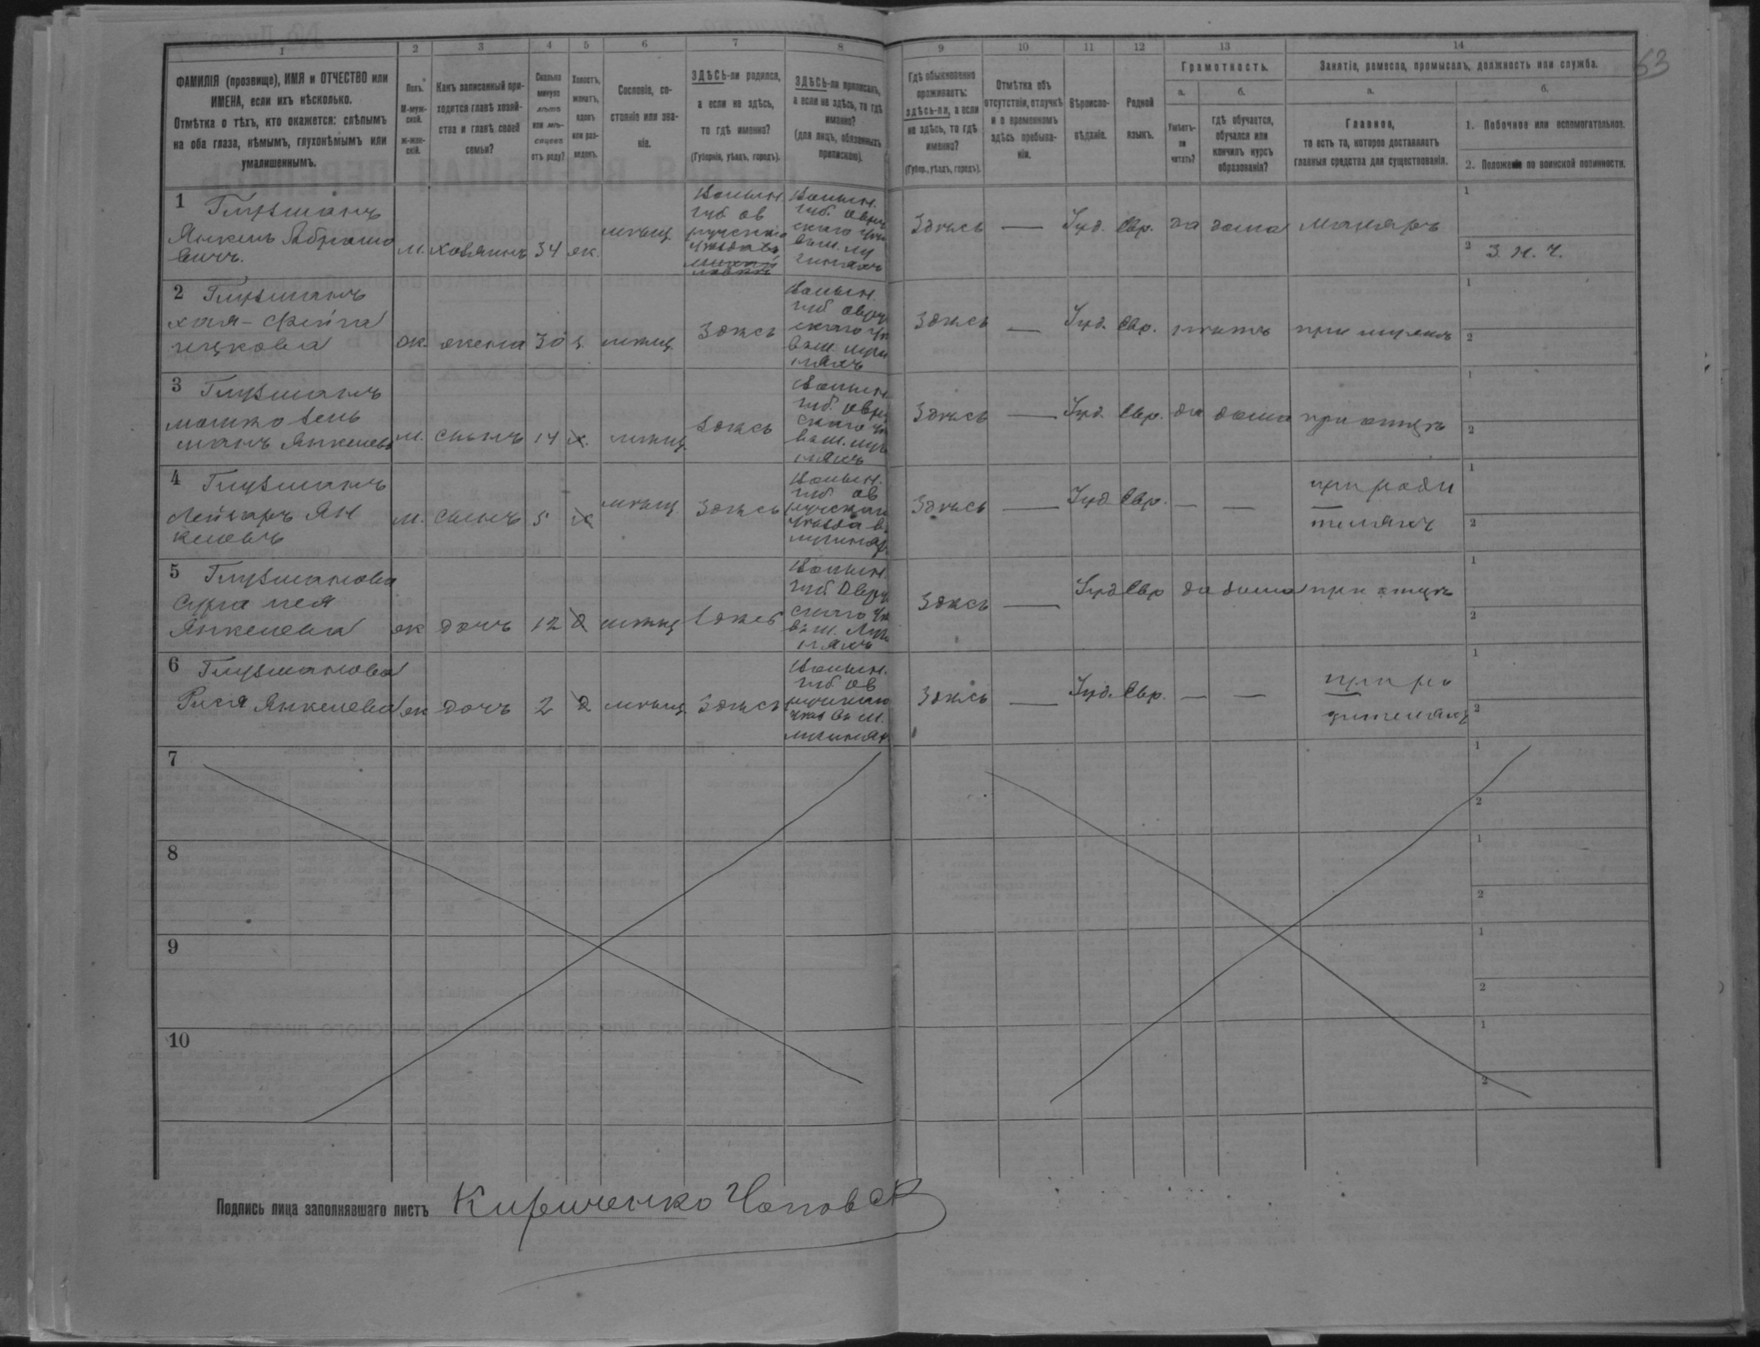 63
1 2 3 4 5 6 7 8 9 10 11 12 13 14
ФАМИЛІЯ (прозвище), ИМЯ и ОТЧЕСТВО или
ИМЕНА, если ихъ нѣсколько.
Отмѣтка о тѣхъ, кто окажется: слѣпымъ
на оба глаза, нѣмымъ, глухонѣмымъ или
умалишеннымъ.
Полъ.
М-муж-
ской.
Ж-жен-
скій.
Какъ записанный при-
ходится главѣ хозяй-
ства и главѣ своей
семьи?
Сколько
минуло
лѣтъ
или мѣ-
сяцевъ
отъ роду?
Холостъ,
женатъ,
вдовъ
или раз-
веденъ.
Сословіе, со-
стояніе или зва-
ніе.
ЗДѢСЬ-ли родился,
а если не здѣсь,
то гдѣ именно?
(Губернія, уѣздъ, городъ).
ЗДѢСЬ-ли приписанъ,
а если не здѣсь, то гдѣ
именно?
(для лицъ, обязанныхъ
припискою).
Гдѣ обыкновенно
проживаетъ:
здѣсь-ли, а если
не здѣсь, то гдѣ
именно?
(Губер., уѣздъ, городъ).
Отмѣтка объ
отсутствіи, отлучкѣ
и о временномъ
здѣсь пребыва-
ніи.
Вѣроиспо-
вѣданіе.
Родной
языкъ.
Грамотность.
а.
Умѣетъ-
ли
читать?
б.
гдѣ обучается,
обучался или
кончилъ курсъ
образованія?
Занятіе, ремесло, промыселъ, должность или служба.
а.
Главное,
то есть то, которое доставляетъ
главныя средства для существованія.
б.
1. Побочное или вспомогательное.
2. Положеніе по воинской повинности.
1 Глузманъ
Янкель Абрамо
вичъ.
м. хозяинъ 34 ж. мѣщ
Волын.
губ. Ов
ручскаго
уѣзда въ
Волын.
губ. Овру
скаго уѣз
въ м. Лу
гинахъ
Здѣсь — Іуд. Евр. да дома маляръ
1
2 З. н. ч.
2 Глузманъ
Хая-Фейга
Ицкова
ж. жена 30 з. мѣщ Здѣсь
Волын.
губ Овру
скаго уѣз
въ м. Луги
нахъ
Здѣсь — Іуд. Евр. нѣтъ при мужѣ
1
2
3 Глузманъ
Мошко Вель
манъ Янкелевъ
м. сынъ 14 х. мѣщ Здѣсь
Волын.
губ. Овру
скаго уѣ
въ м. Луги
нахъ
Здѣсь — Іуд. Евр. да дома при отцѣ
1
2
4 Глузманъ
Лейзаръ Ян
келевъ
м. сынъ 5 х мѣщ Здѣсь
Волын.
губ Ов
ручскаго
уѣзда в
Лугинах
Здѣсь — Іуд. Евр. — —
при роди
телахъ
1
2
5 Глузманова
Сура Лея
Янкелева
ж дочь 12 д мѣщ Здѣсь
Волын.
губ Овру
скаго уѣ
въ м. Луги
нахъ
Здѣсь — Іуд Евр да дома при отцѣ
1
2
6 Глузманова
Рися Янкелева
ж дочь 2 д мѣщ Здѣсь
Волын.
губ Ов
ручскаго
уѣз въ м.
Лугинах
Здѣсь — Іуд. Евр. — —
при ро
дителяхъ
1
2
7
1
2
8
1
2
9
1
2
10
1
2
Подпись лица заполнявшаго листъ